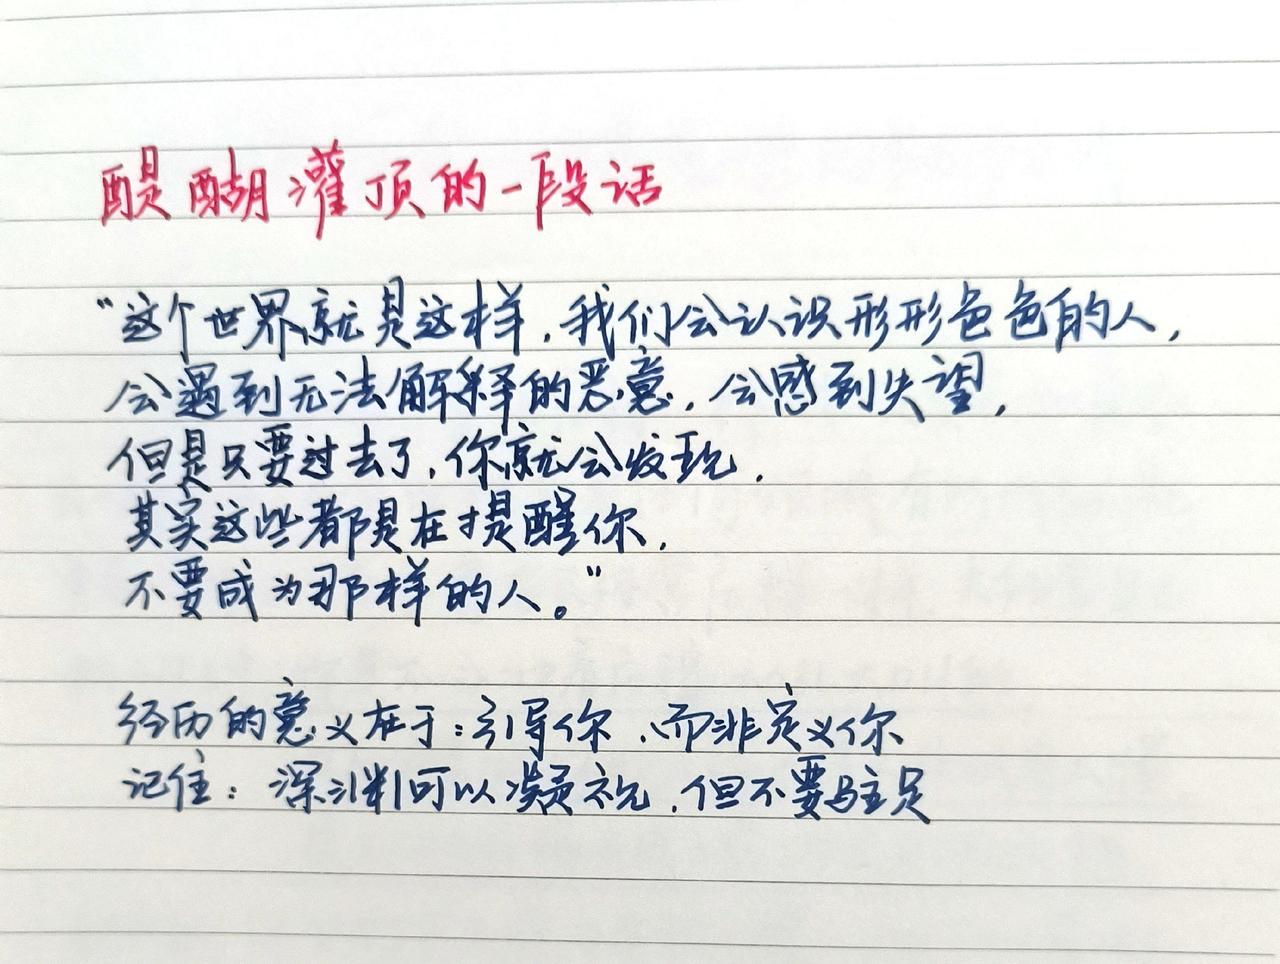 醍醐灌顶的一段话
“这个世界就是这样,我们会认识形形色色的人,
会遇到无法解释的恶意,会感到失望,
但是只要过去了,你就会发现,
其实这些都是在提醒你,
不要成为那样的人。”
经历的意义在于:引导你,而非定义你
记住:深渊可以凝视,但不要驻足